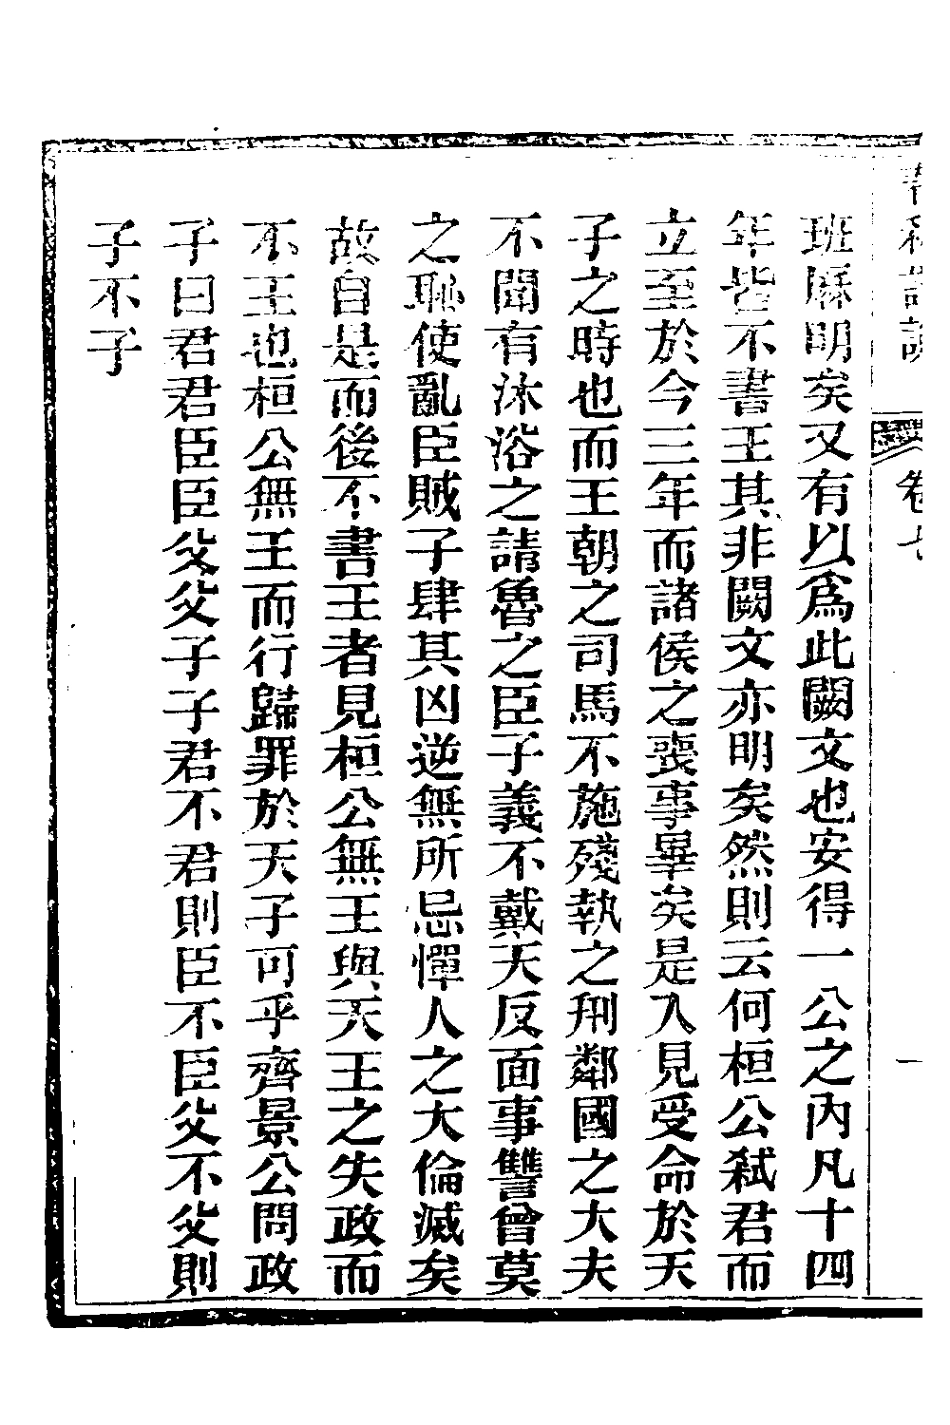 卷七
一
班厤明矣又有以爲此闕文也安得一公之內凡十四
年皆不書王其非闕文亦明矣然則云何桓公弒君而
立至於今三年而諸侯之喪事畢矣是入見受命於天
子之時也而王朝之司馬不施殘執之刑鄰國之大夫
不聞有沐浴之請魯之臣子義不戴天反面事讐曾莫
之恥使亂臣賊子肆其凶逆無所忌憚人之大倫滅矣
故自是而後不書王者見桓公無王與天王之失政而
不王也桓公無王而行歸罪於天子可乎齊景公問政
子曰君君臣臣父父子子君不君則臣不臣父不父則
子不子